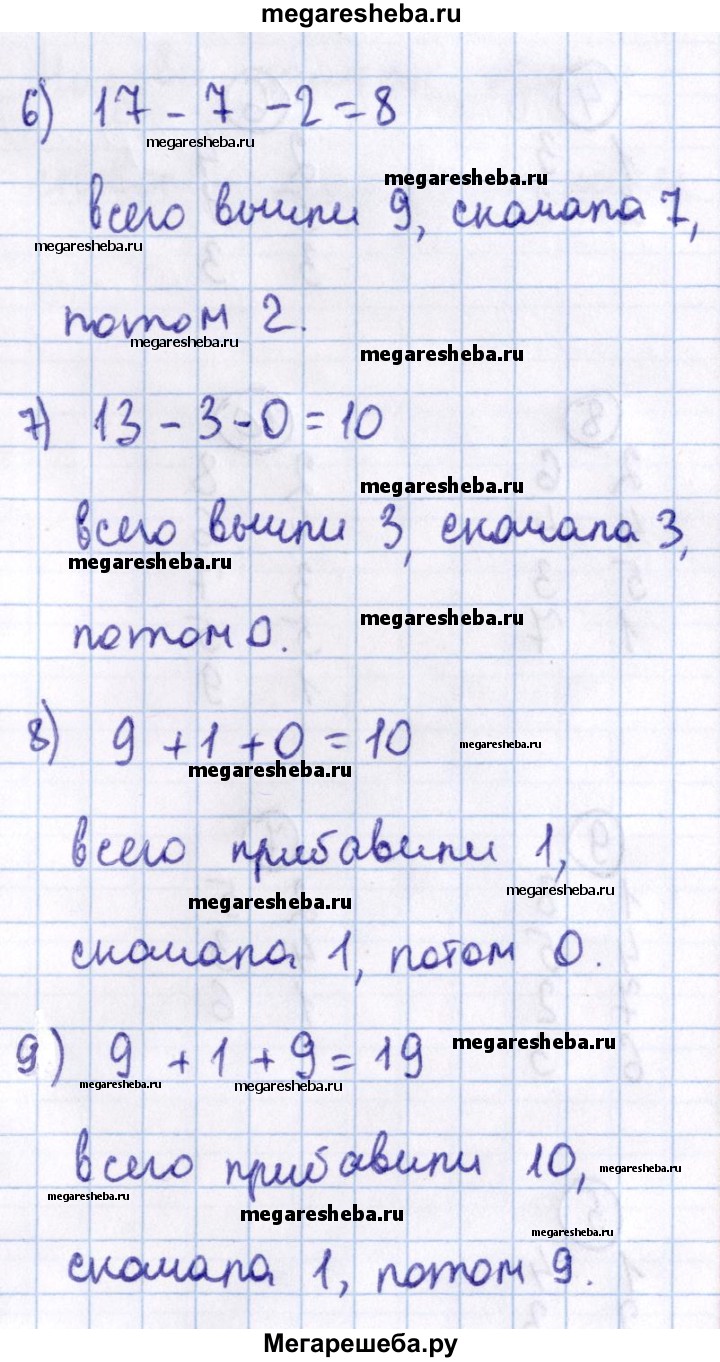 megaresheba.ru
6) 17 - 7 - 2 = 8
megaresheba.ru
megaresheba.ru
всего вычли 9, сначала 7,
megaresheba.ru
потом 2.
megaresheba.ru
megaresheba.ru
7) 13 - 3 - 0 = 10
megaresheba.ru
всего вычли 3, сначала 3,
megaresheba.ru
потом 0.
megaresheba.ru
8) 9 + 1 + 0 = 10
megaresheba.ru
megaresheba.ru
всего прибавили 1,
megaresheba.ru
megaresheba.ru
сначала 1, потом 0.
9) 9 + 1 + 9 = 19
megaresheba.ru
megaresheba.ru
megaresheba.ru
всего прибавили 10,
megaresheba.ru
megaresheba.ru
megaresheba.ru
megaresheba.ru
сначала 1, потом 9.
Мегарешеба.ру